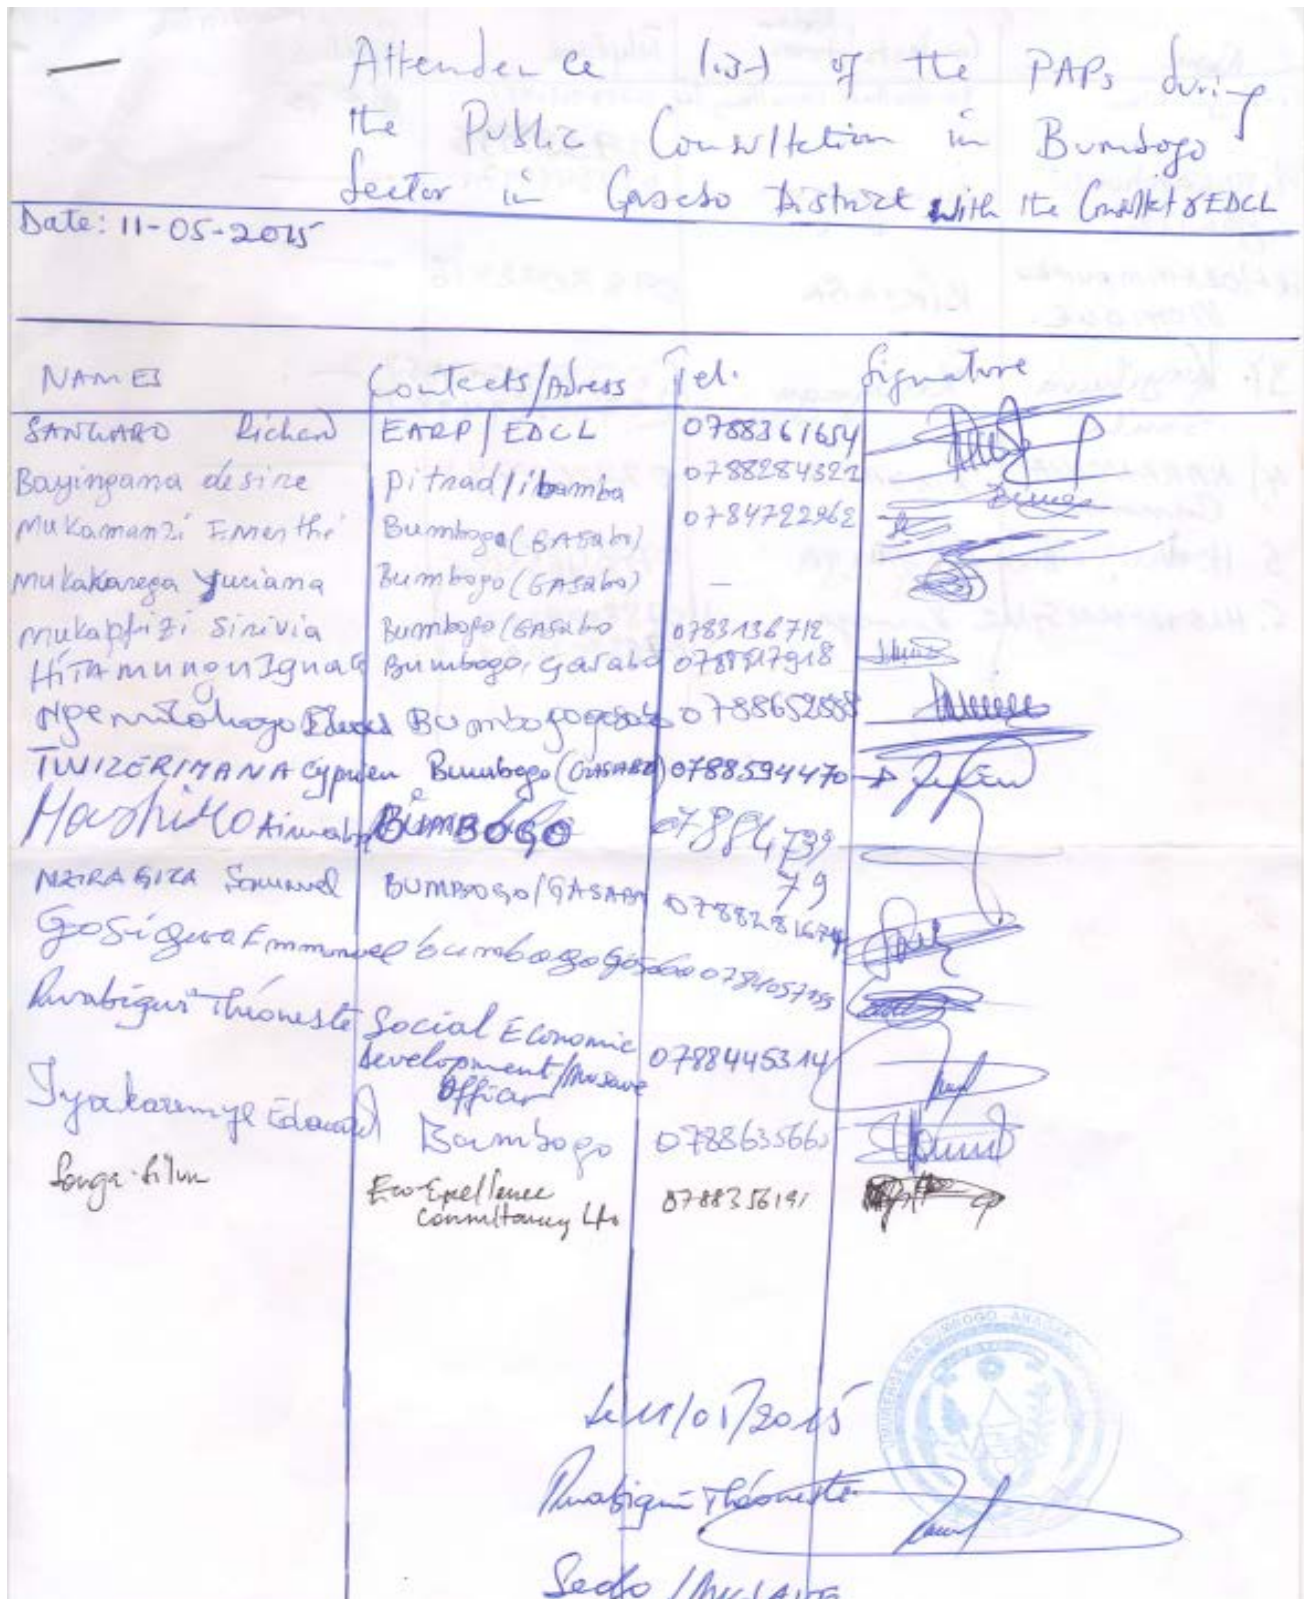 Attendence list of the PAPs during
the Public Consultation in Bumbogo
Sector in Gasabo District with the Consltct & EDCL
Date: 11-05-2015
NAMES Contects/Adress Tel. Signature
SANGANO Richard EARP/EDCL 0788361654
Bayingama desire pitrad/ibamba 0788284322
Mukamanzi Emerthe Bumbogo (GASabo) 0784722962
Mukakarega Yuriama Bumbogo (GASabo) -
mukapfizi Sirivia Bumbogo (GASabo 0783136712
HiTAmungu Ignace Bumbogo, Gasabo 0788517918
Bumbogo gasabo 0788652558
TWIZERIMANA Cyprien Bumbogo (GASABO) 0788594470
Hashi BUMBOGO 07884739
79
NZIRAGIZA Samuel BUMBOGO/GASABO
Emmanuel bumbogo gasabo
Rwabigwi Théoneste Social Economic
Development/Musave 0788445314
Officer
Iyakaremye Edouard Bumbogo 0788635665
Eco-Excellence 0788356191
Consultancy Ltd
UMURENGE WA BUMBOGO
Le 11/05/2015
Rwabigwi Théoneste
Sedo /